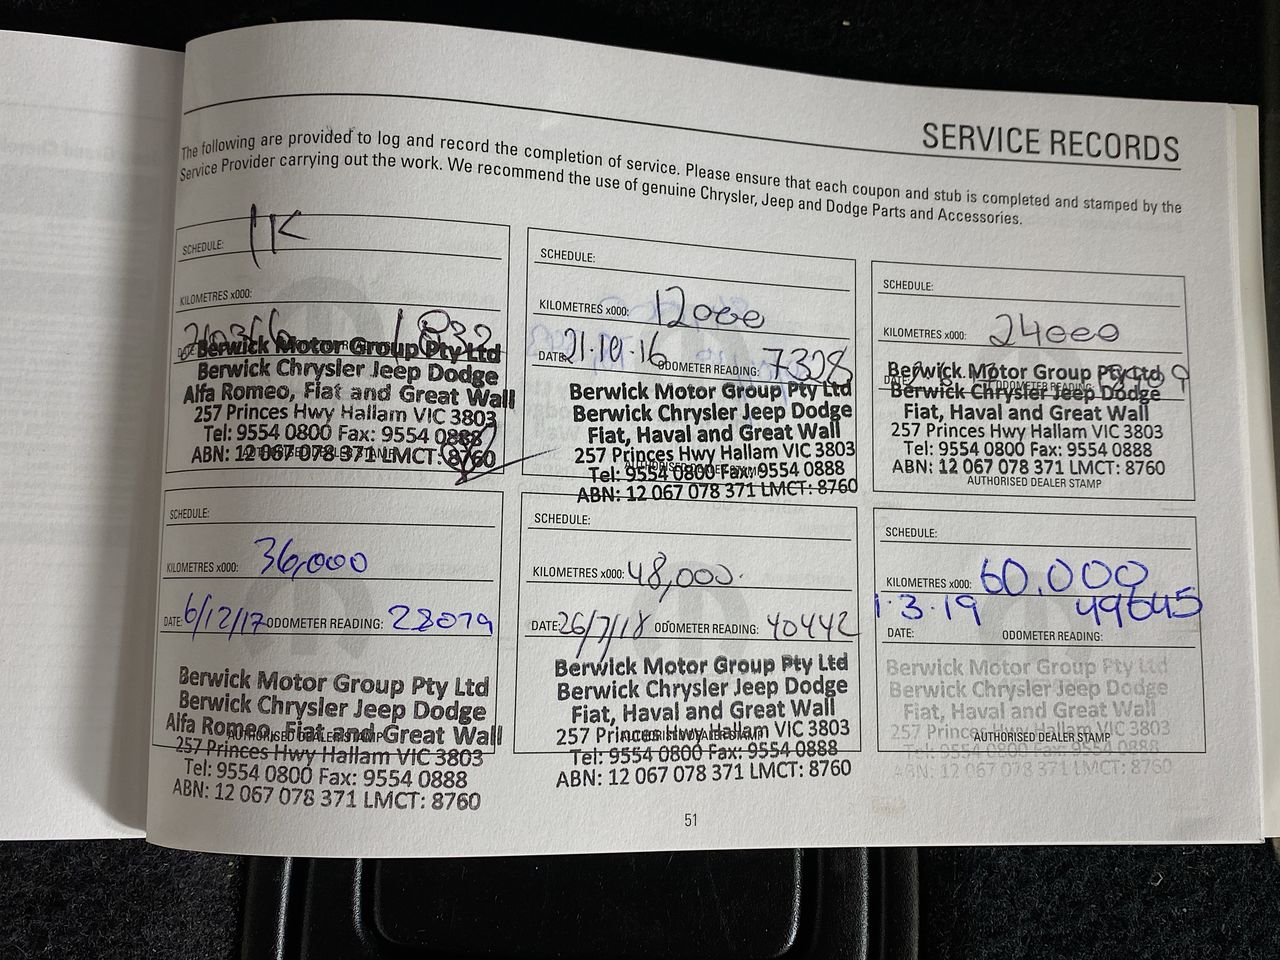 SERVICE RECORDS
The following are provided to log and record the completion of service. Please ensure that each coupon and stub is completed and stamped by the
Service Provider carrying out the work. We recommend the use of genuine Chrysler, Jeep and Dodge Parts and Accessories.
SCHEDULE: 1K
KILOMETRES x000:
1832
Berwick Motor Group Pty Ltd
Berwick Chrysler Jeep Dodge
Alfa Romeo, Fiat and Great Wall
257 Princes Hwy Hallam VIC 3803
Tel: 9554 0800 Fax: 9554 0888
ABN: 12 067 078 371 LMCT: 8760
AUTHORISED DEALER STAMP
SCHEDULE:
KILOMETRES x000: 12000
DATE: 21.10.16 ODOMETER READING: 7328
Berwick Motor Group Pty Ltd
Berwick Chrysler Jeep Dodge
Fiat, Haval and Great Wall
257 Princes Hwy Hallam VIC 3803
AUTHORISED DEALER STAMP
Tel: 9554 0800 Fax: 9554 0888
ABN: 12 067 078 371 LMCT: 8760
SCHEDULE:
KILOMETRES x000: 24000
DATE: ODOMETER READING:
Berwick Motor Group Pty Ltd
Berwick Chrysler Jeep Dodge
Fiat, Haval and Great Wall
257 Princes Hwy Hallam VIC 3803
Tel: 9554 0800 Fax: 9554 0888
ABN: 12 067 078 371 LMCT: 8760
AUTHORISED DEALER STAMP
SCHEDULE:
KILOMETRES x000: 36,000
DATE: 6/12/17 ODOMETER READING: 28079
Berwick Motor Group Pty Ltd
Berwick Chrysler Jeep Dodge
Alfa Romeo, Fiat and Great Wall
AUTHORISED DEALER STAMP
257 Princes Hwy Hallam VIC 3803
Tel: 9554 0800 Fax: 9554 0888
ABN: 12 067 078 371 LMCT: 8760
SCHEDULE:
KILOMETRES x000: 48,000.
DATE: 26/7/18 ODOMETER READING: 40442
Berwick Motor Group Pty Ltd
Berwick Chrysler Jeep Dodge
Fiat, Haval and Great Wall
257 Princes Hwy Hallam VIC 3803
AUTHORISED DEALER STAMP
Tel: 9554 0800 Fax: 9554 0888
ABN: 12 067 078 371 LMCT: 8760
SCHEDULE:
KILOMETRES x000: 60.000
1.3.19 49645
DATE: ODOMETER READING:
Berwick Motor Group Pty Ltd
Berwick Chrysler Jeep Dodge
Fiat, Haval and Great Wall
257 Princes Hwy Hallam VIC 3803
AUTHORISED DEALER STAMP
Tel: 9554 0800 Fax: 9554 0888
ABN: 12 067 078 371 LMCT: 8760
51